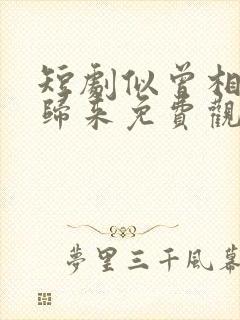 短劇似曾相
歸來免費觀
夢里三千風幕